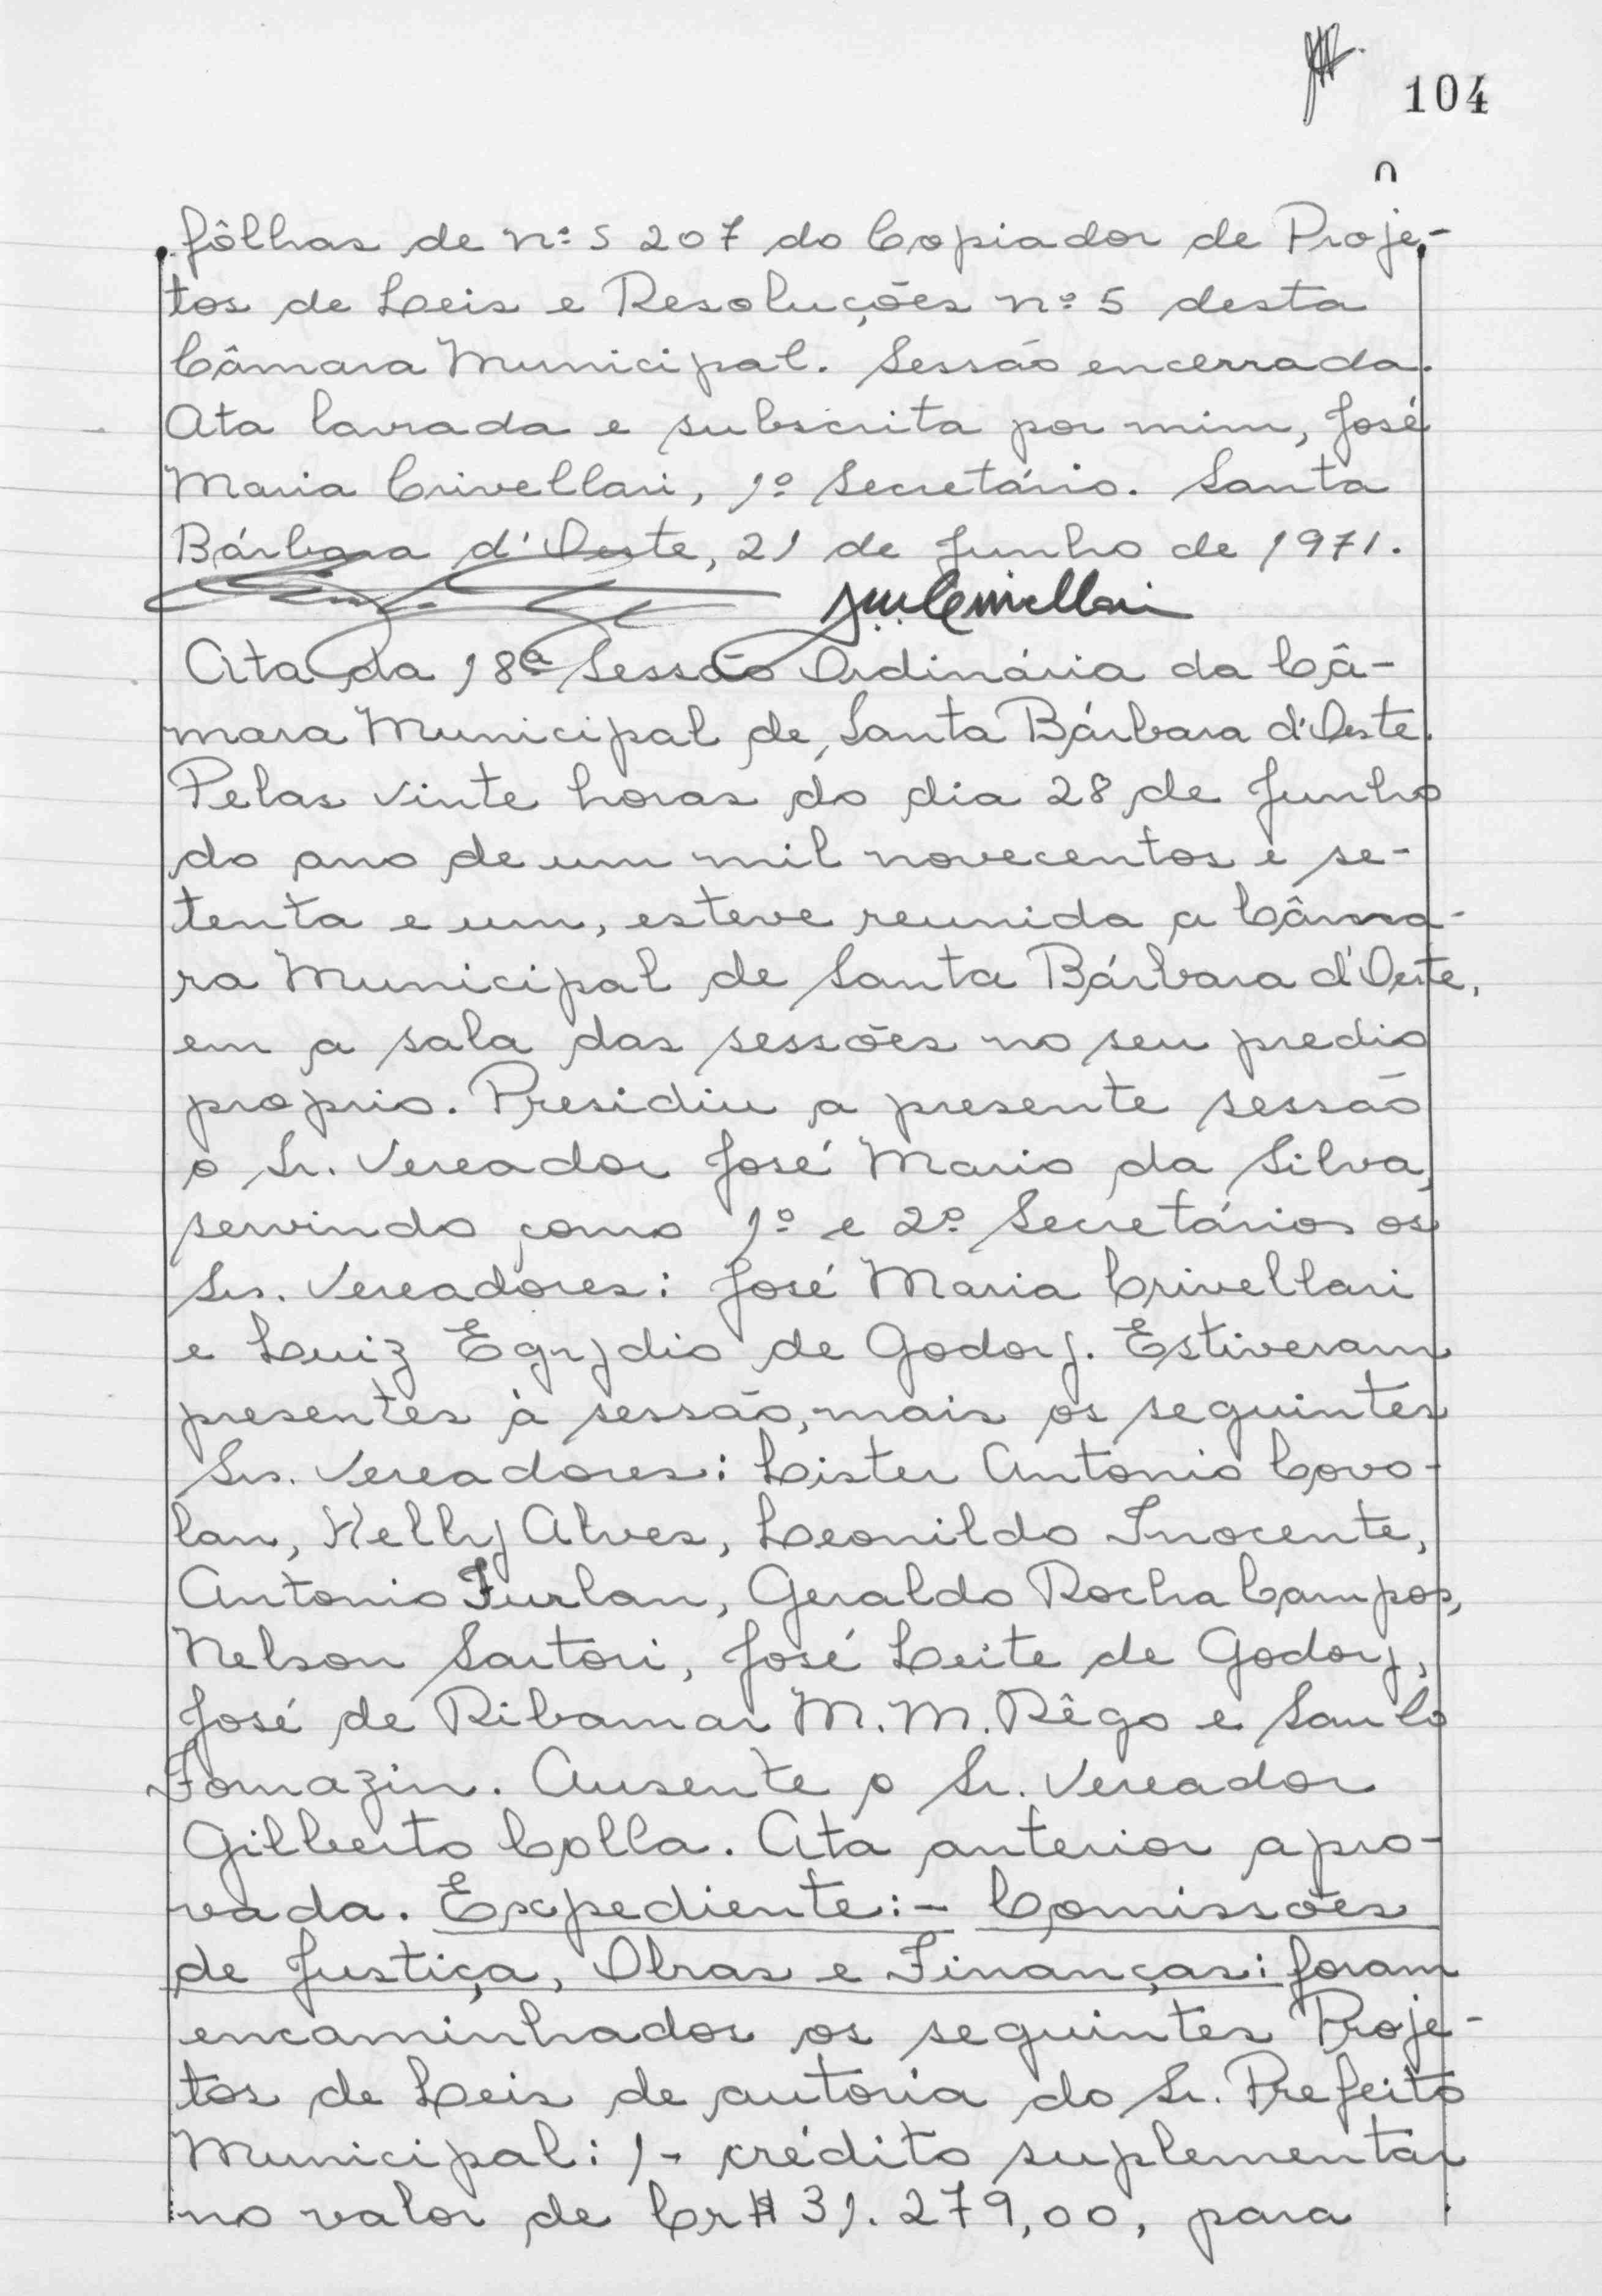 104
fôlhas de nºs 207 do Copiador de Proje-
tos de Leis e Resoluções nº 5 desta
Câmara Municipal. Sessão encerrada.
Ata lavrada e subscrita por mim, José
Maria Crivellari, 1º Secretário. Santa
Bárbara d'Oeste, 21 de Junho de 1971.
Ata da 18ª Sessão Ordinária da Câ-
mara Municipal de Santa Bárbara d'Oeste.
Pelas vinte horas do dia 28 de Junho
do ano de um mil novecentos e se-
tenta e um, esteve reunida a Câma-
ra Municipal de Santa Bárbara d'Oeste,
em a sala das sessões no seu predio
proprio. Presidiu a presente sessão
o Sr. Vereador José Mario da Silva,
servindo como 1º e 2º Secretários os
Srs. Vereadores: José Maria Crivellari
e Luiz Egydio de Godoy. Estiveram
presentes à sessão, mais os seguintes
Srs. Vereadores: Lister Antonio Covo-
lan, Kelly Alves, Leonildo Inocente,
Antonio Furlan, Geraldo Rocha Campos,
Nelson Sartori, José Leite de Godoy,
José de Ribamar M. M. Rêgo e Saulo
Fomazin. Ausente o Sr. Vereador
Gilberto Colla. Ata anterior apro-
vada. Expediente:- Comissões
de Justiça, Obras e Finanças: foram
encaminhados os seguintes Proje-
tos de Leis de autoria do Sr. Prefeito
Municipal: 1- crédito suplementar
no valor de Cr$ 31.279,00, para